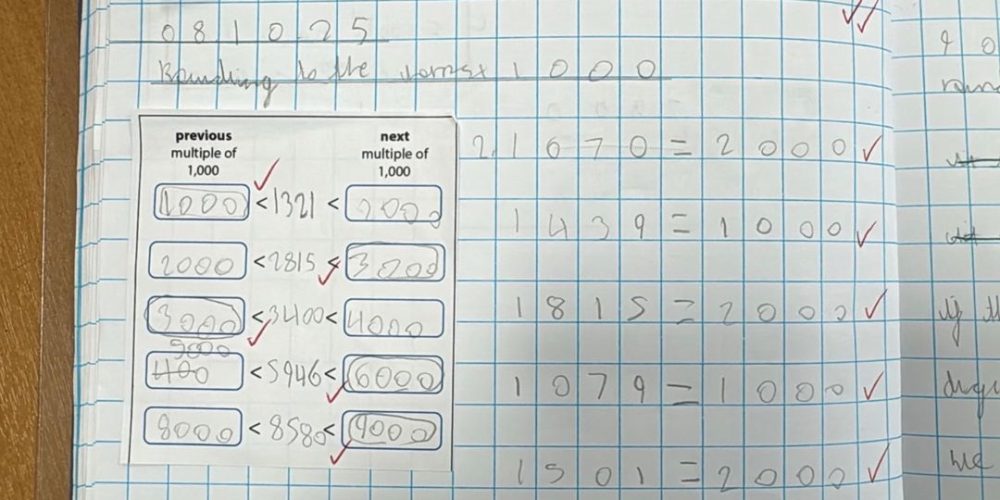 081025
Rounding to the nearest 1000
previous multiple of 1,000
next multiple of 1,000
1000 < 1321 < 2000
2000 < 2815 < 3000
3000 < 3400 < 4000
5000
400 < 5946 < 6000
8000 < 8580 < 9000
2. 1670 = 2000
1439 = 1000
1815 = 2000
1079 = 1000
1501 = 2000
we